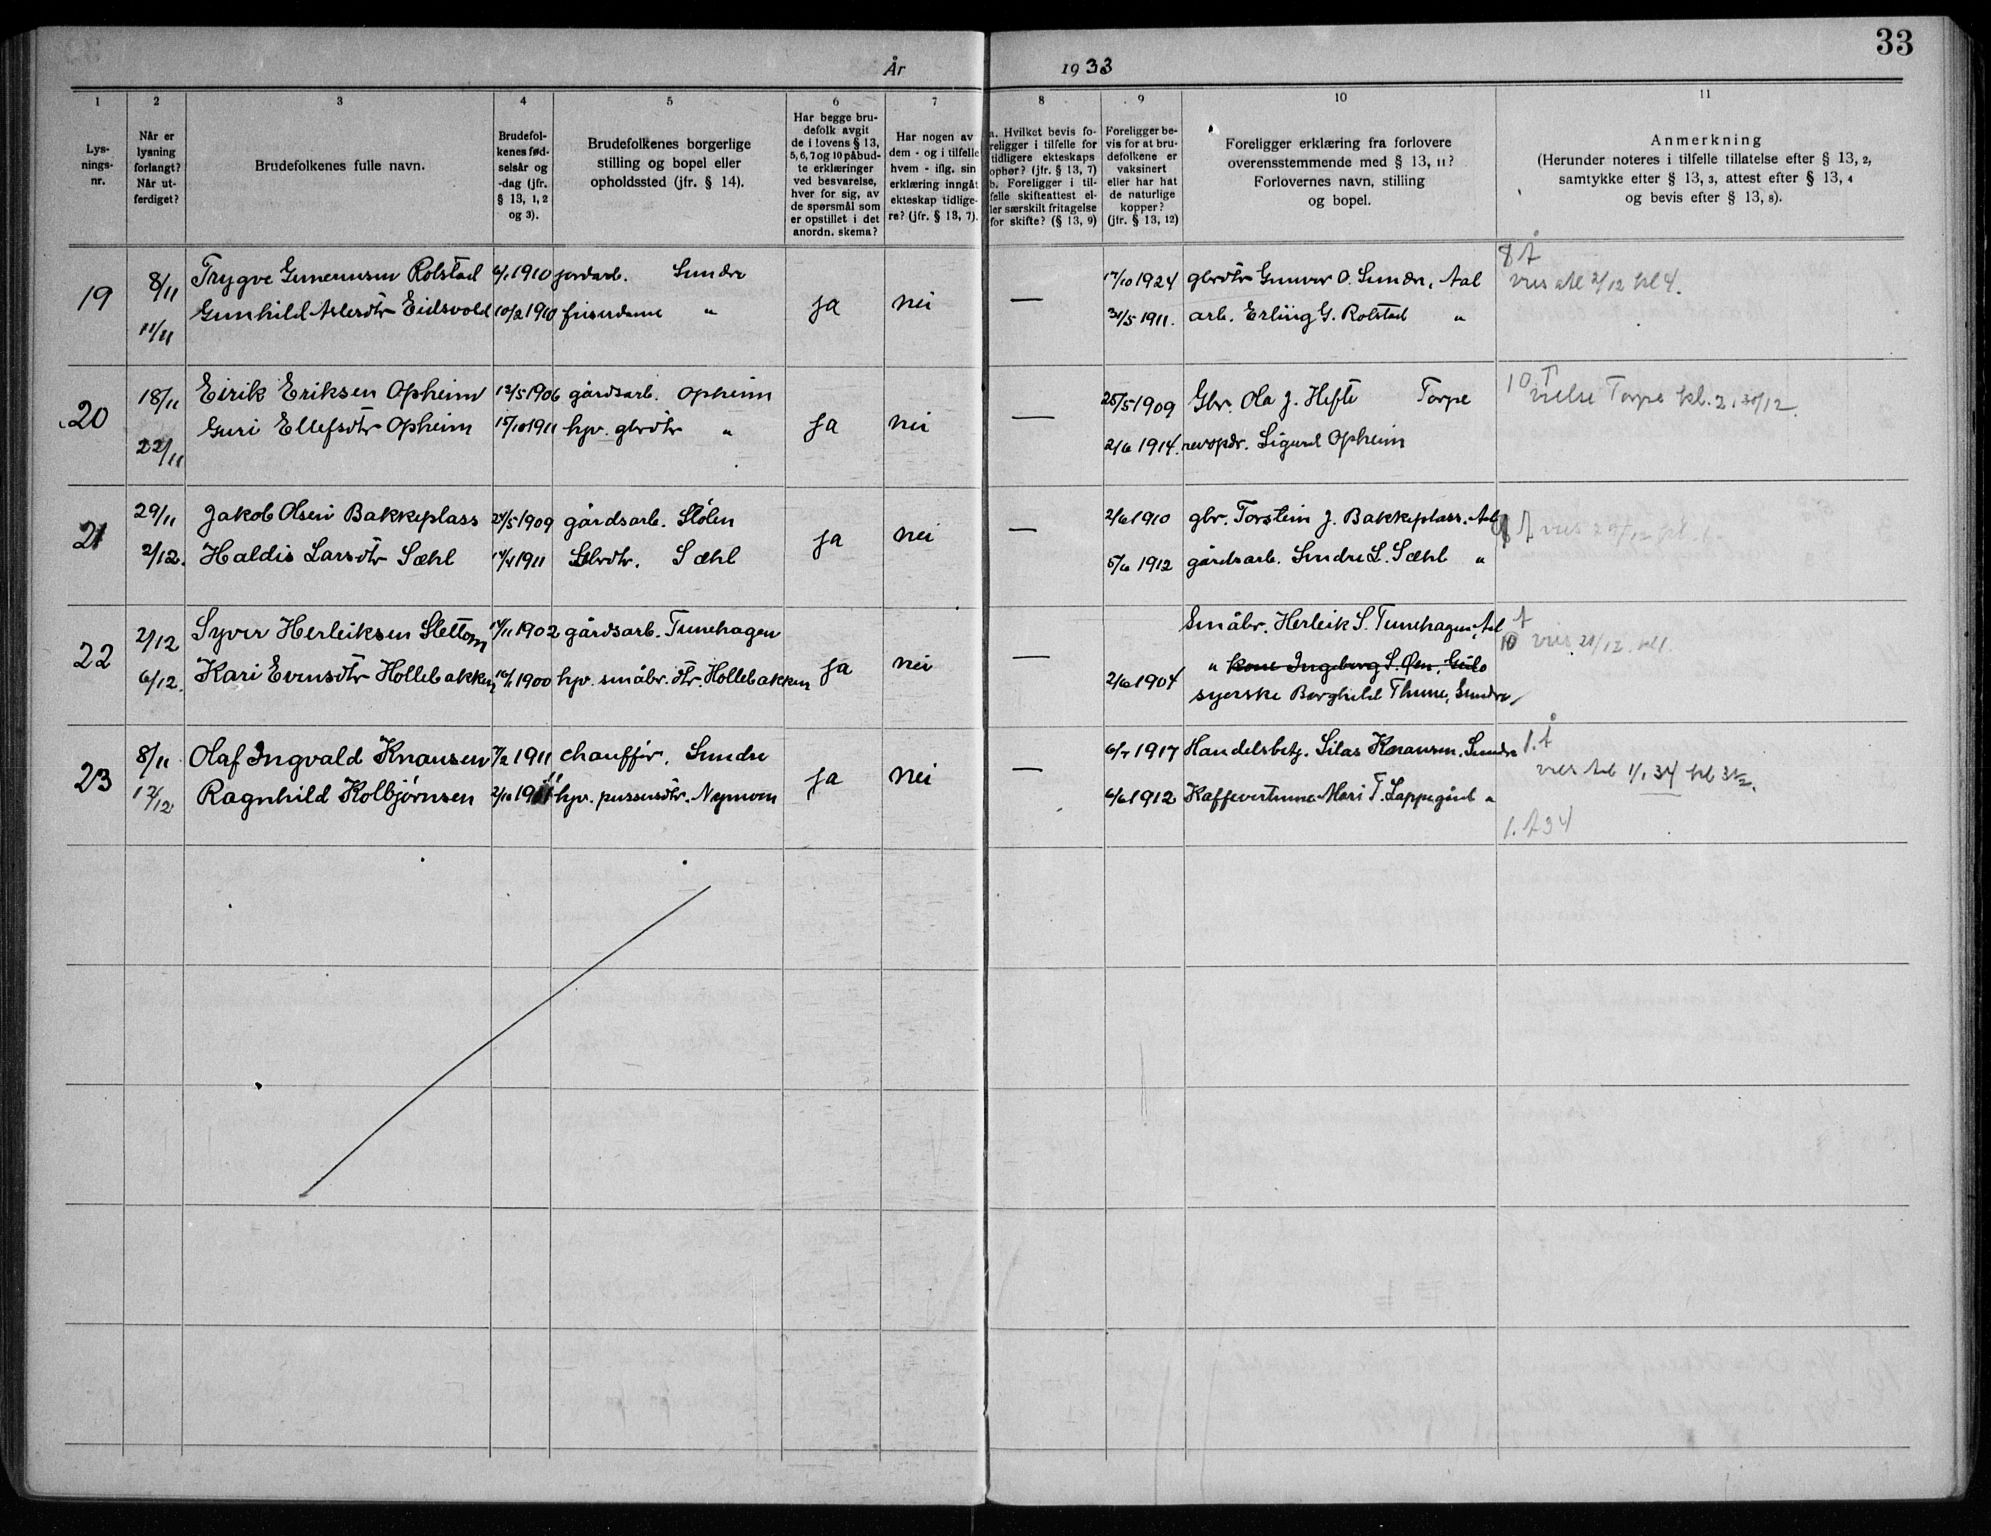 33
År 1933
1 2 3 4 5 6 7 8 9 10 11
Lys-
nings-
nr.
Når er
lysning
forlangt?
Når ut-
ferdiget?
Brudefolkenes fulle navn.
Brudefol-
kenes fød-
selsår og
-dag (jfr.
§ 13, 1, 2
og 3).
Brudefolkenes borgerlige
stilling og bopel eller
opholdssted (jfr. § 14).
Har begge bru-
defolk avgit
de i lovens § 13,
5, 6, 7 og 10 påbud-
te erklæringer
ved besvarelse,
hver for sig, av
de spørsmål som
er opstillet i det
anordn. skema?
Har nogen av
dem - og i tilfelle
hvem - iflg. sin
erklæring inngåt
ekteskap tidlige-
re? (jfr. § 13, 7).
a. Hvilket bevis fo-
religger i tilfelle for
tidligere ekteskaps
ophør? (jfr. § 13, 7)
b. Foreligger i til-
felle skifteattest el-
ler særskilt fritagelse
for skifte? (§ 13, 9)
Foreligger be-
vis for at bru-
defolkene er
vaksinert
eller har hat
de naturlige
kopper?
(jfr. § 13, 12)
Foreligger erklæring fra forlovere
overensstemmende med § 13, 11?
Forlovernes navn, stilling
og bopel.
Anmerkning
(Herunder noteres i tilfelle tillatelse efter § 13, 2,
samtykke efter § 13, 3, attest efter § 13, 4
og bevis efter § 13, 8).
19
8/11 Trygve Rolstad 1910 jordarb. Sundre 17/10 1924 glrdtr Gunvor O. Sundre, Aal
11/11 Gunhild Aslesdtr Eidsvold 10/2 1910 frisørdame " ja nei — 31/5 1911. arb. Erling G. Rolstad "
8 Å
vies Aal 2/12 kl 4.
20
18/11 Eirik Eriksen Opheim 13/5 1906 gårdsarb. Opheim 25/5 1909 Gbr. Ola J. Hefte Torpe
22/11 Guri Ellefsdtr Opheim 15/10 1911 hpv. gbrdtr " ja nei — 2/6 1914. Sigurd Opheim
10 T
vielse Torpe kl. 2, 30/12.
21
29/11 Jakob Olsen Bakkeplass 1909 gårdsarb. Stølen 2/6 1910 gbr. Torstein J. Bakkeplass, Aal
2/12. Haldis Larsdtr Sæhl 1911 Gbrdtr. Sæhl ja nei — 5/6 1912 gårdsarb. Sindre L. Sæhl "
Å vies
22
2/12 Syver Herleiksen Slettom 1902 gårdsarb. Tunehagen Småbr. Herleik S. Tunehagen, Aal
6/12. Kari Evensdtr Hollebakken 1900 hpv. småbr.dtr. Hollebakken ja nei — 2/6 1904 " kone Ingeborg S. Øen, Geilo
syerske Borghild Thune, Sundre
Å
10 vies
23
8/11 Olaf Ingvald Knausen 1911 chauffør. Sundre 1917 Handelsbetj. Silas Knausen, Sundre
12/12 Ragnhild Kolbjørnsen 2/10 1911 hpv. Nymoen ja nei — 6/6 1912 Kaffevertinne Mari T. Lappegård "
1. Å
vies Aal 1/1 34 kl 3½.
1. Å 34